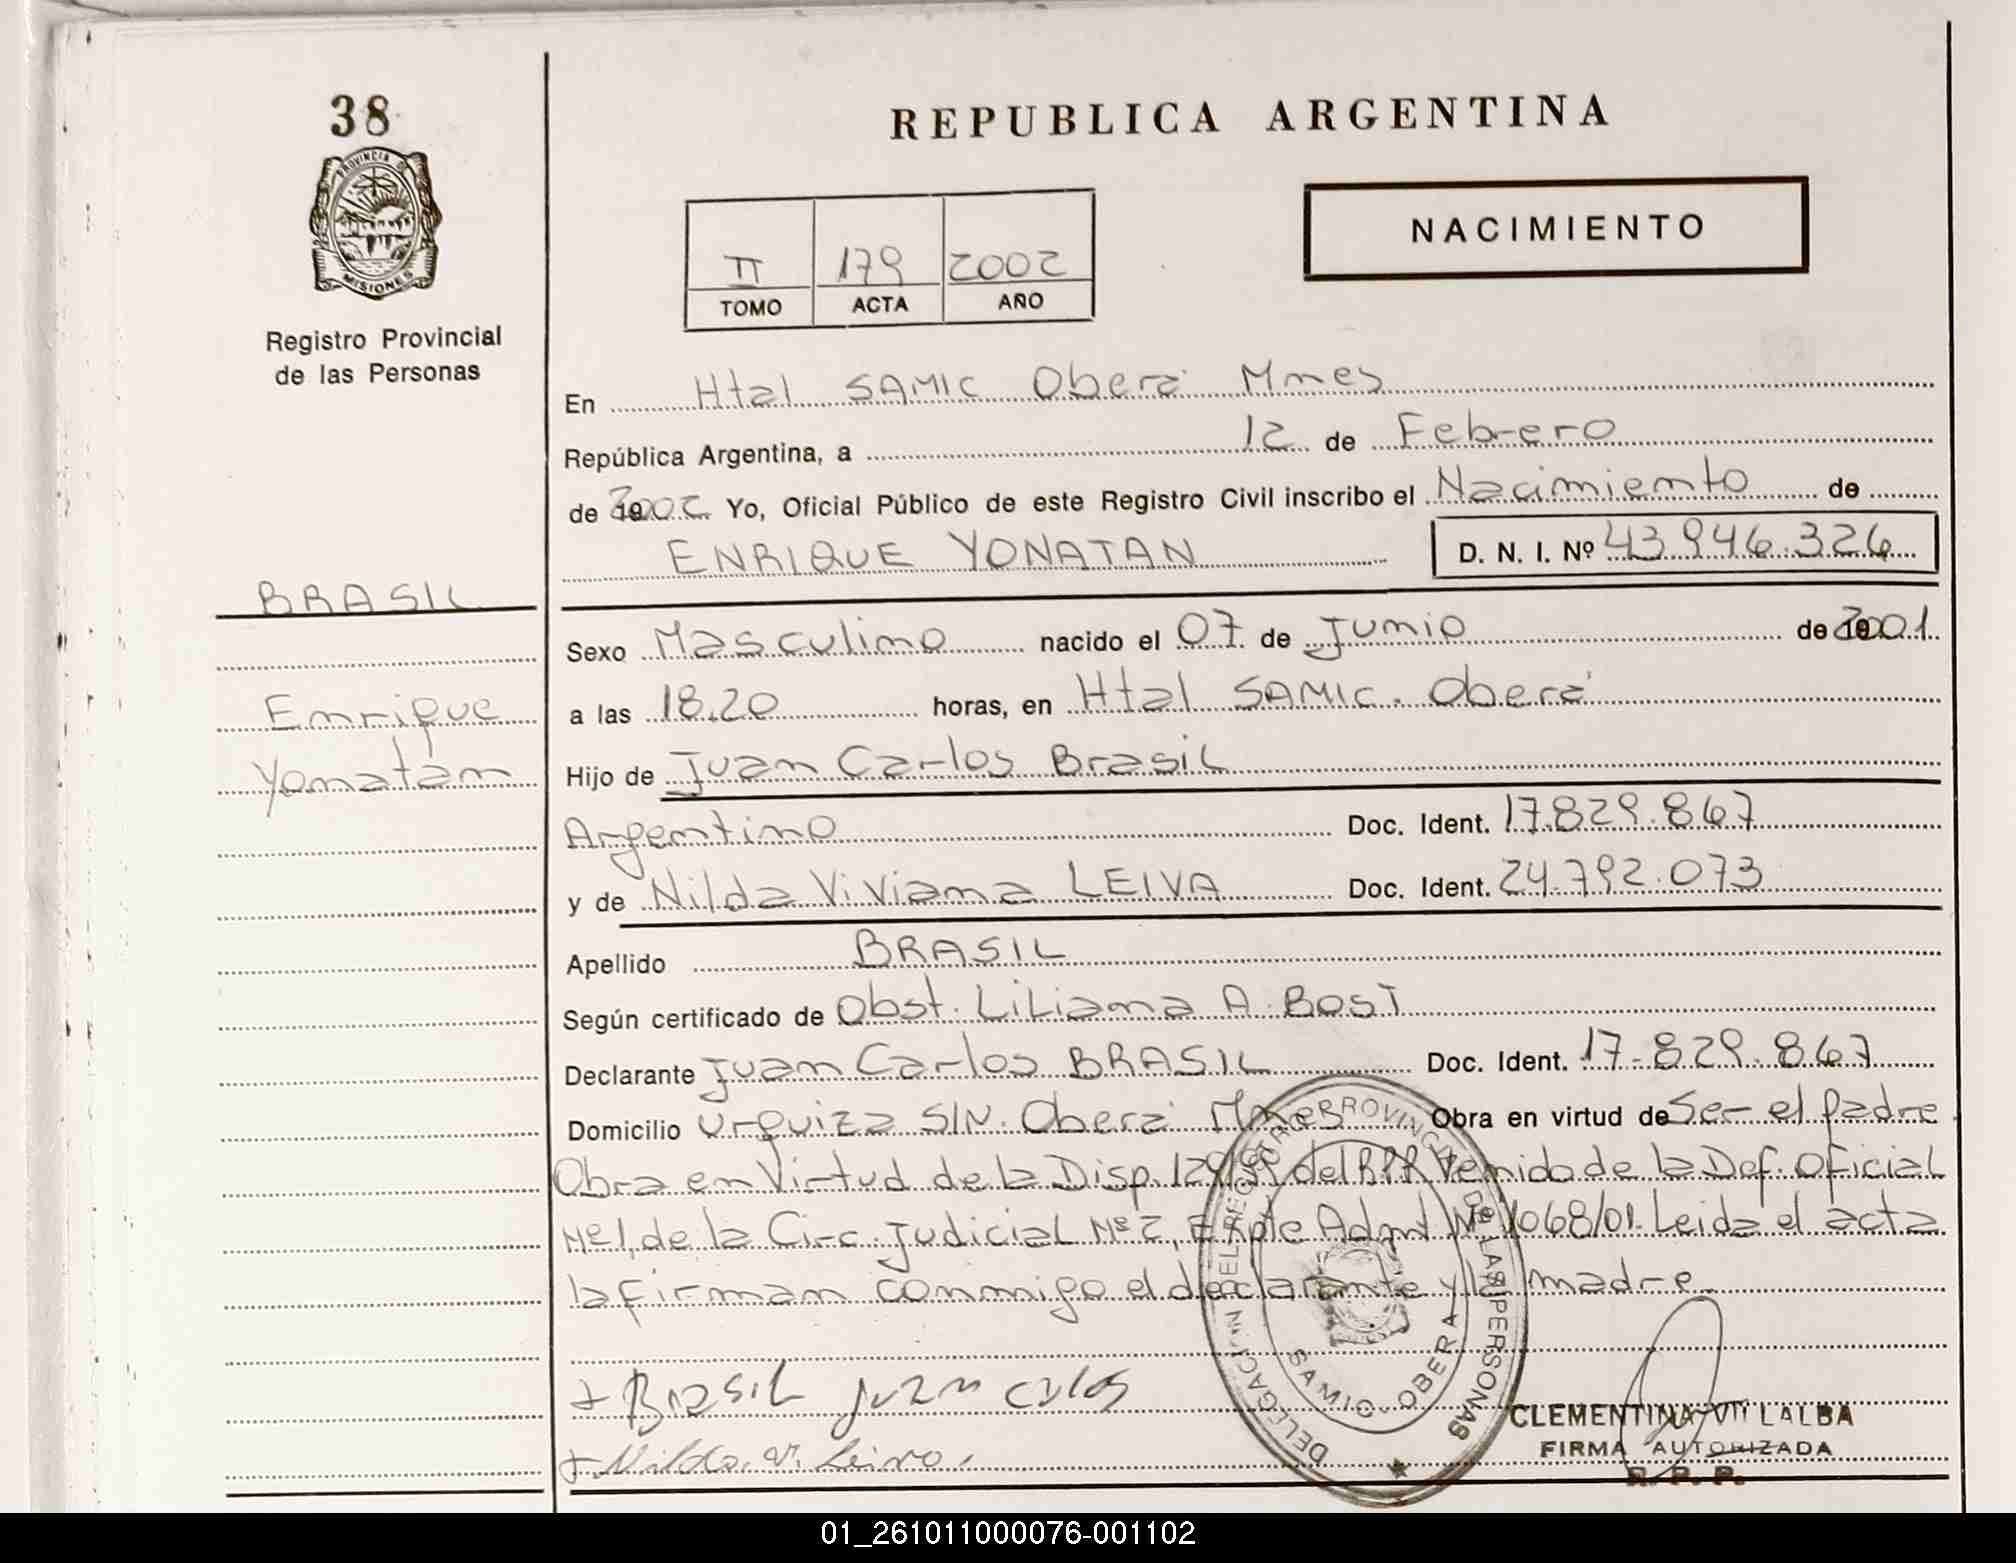 38
REPUBLICA ARGENTINA
PROVINCIA DE
MISIONES
NACIMIENTO
II 179 2002
TOMO ACTA AÑO
Registro Provincial
de las Personas
En Htal SAMIC Oberá Mnes
República Argentina, a 12 de Febrero
de 2002 Yo, Oficial Público de este Registro Civil inscribo el Nacimiento de
ENRIQUE YONATAN D. N. I. Nº 43.946.326
BRASIL
Enrique
Yonatán
Sexo Masculino nacido el 07 de Junio de 2001
a las 18.20 horas, en Htal SAMIC. Oberá
Hijo de Juan Carlos Brasil
Argentino Doc. Ident. 17.829.867
y de Nilda Viviana LEIVA Doc. Ident. 24.792.073
Apellido BRASIL
Según certificado de Obst. Liliana A. BOST
Declarante Juan Carlos BRASIL Doc. Ident. 17.829.867
Domicilio Urquiza S/N. Oberá Mnes Obra en virtud de Ser el padre
Obra en Virtud de la Disp. del RPP Venido de la Def. Oficial
Nº1, de la Circ. Judicial Nº2, Expte Adm Nº 1068/01. Leida el acta
la firman conmigo el declarante y la madre
+ Brasil Juan Carlos
+ Nilda. V. Leiva.
DELEGACION DEL REGISTRO PROVINCIAL DE LAS PERSONAS
SAMIC-OBERA
CLEMENTINA VILLALBA
FIRMA AUTORIZADA
R. P. P.
01_261011000076-001102